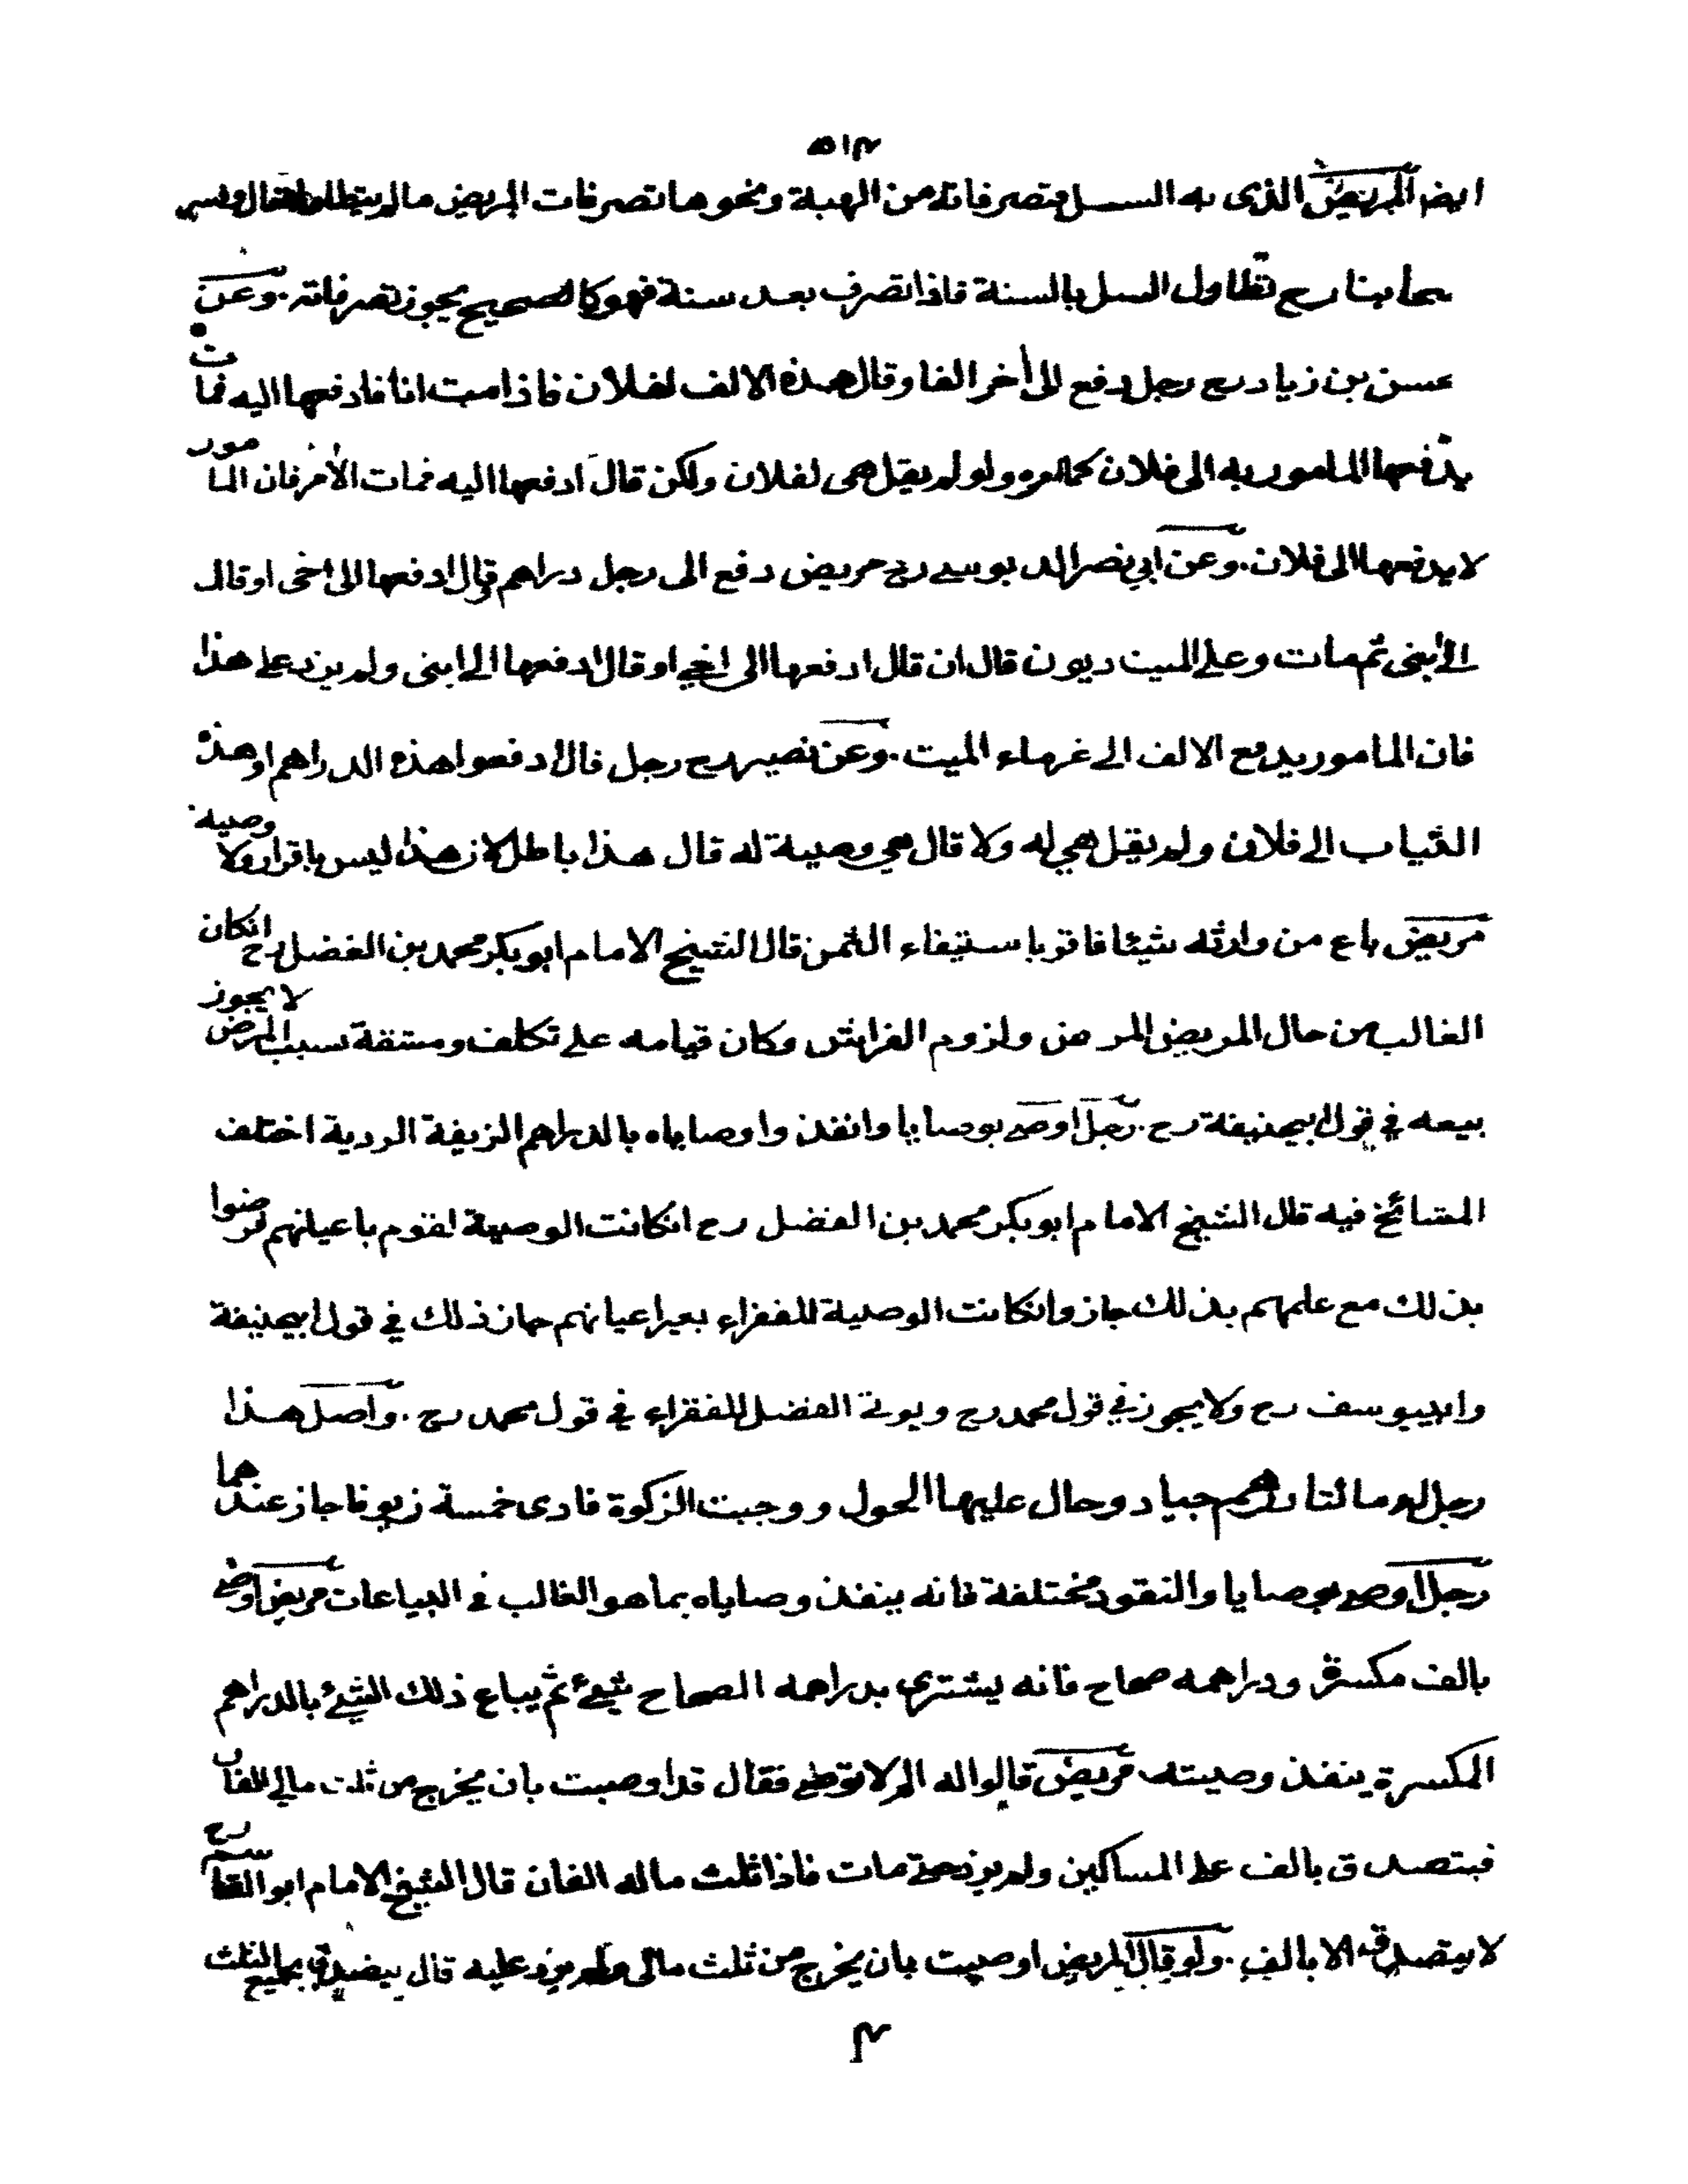 ٥١٤
ايضا المريض الذى به السل فتصرفاته من الهبة ونحوها تصرفات المريض مالم يتطاول وفسر
اصحابنا رح تطاول السل بالسنة فاذا تصرف بعد سنة فهو كالصحيح يجوز تصرفاته . وعن
حسن بن زياد رح رجل دفع الى أخر الفا وقال هذه الالف لفلان فاذا مت انا فادفعها اليه فمات
يدفعها المامور به الى فلان كما امره ولو لم يقل هى لفلان ولكن قال ادفعها اليه فمات الأمر فان المامور
لا يدفعها الى فلان . وعن ابي نصر الدبوسے رح مريض دفع الى رجل دراهم وقال ادفعها الى اخى او قال
الى ابنى ثم مات وعلى الميت ديون قال ان قال ادفعها الى اخي او قال ادفعها الے ابنى ولم يزد علے هذا
فان المامور يدفع الالف الے غرماء الميت . وعن نصير رح رجل قال ادفعوا هذه الدراهم او هذه
الثياب الے فلان ولم يقل هي له ولا قال هي وصية له قال هذا باطل لان هذا ليس باقرار ولا وصية
مريض باع من وارثه شيئا فاقر باستيفاء الثمن قال الشيخ الامام ابو بكر محمد بن الفضل رح انكان
الغالب من حال المريض المرض ولزوم الفراش وكان قيامه علے تكلف ومشقة بسبب المرض لا يجوز
بيعه في قول ابيحنيفة رح . رجل اوصے بوصايا وانفذوا وصاياه بالدراهم الزيفة الردية اختلف
المشائخ فيه قال الشيخ الامام ابو بكر محمد بن الفضل رح انكانت الوصية لقوم باعيانهم فرضوا
بذلك مع علمهم بذلك جاز وانكانت الوصية للفقراء بغير اعيانهم جاز ذلك في قول ابيحنيفة
وابييوسف رح ولا يجوز في قول محمد رح ويوتے الفضل للفقراء في قول محمد رح . واصل هذا
رجل له مائتا درهم جياد وحال عليها الحول ووجبت الزكوة فادى خمسة زيوفا جاز عندهما
رجل اوصے بوصايا والنقود مختلفة فانه ينفذ وصاياه بما هو الغالب في البياعات مريض اوصے
بالف مكسرة ودراهمه صحاح فانه يشتري بدراهمه الصحاح شيئ ثم يباع ذلك الشيئ بالدراهم
المكسرة ينفذ وصيته مريض قالوا له لم لا توصے فقال قد اوصيت بان يخرج من ثلث مالي الفان
فيتصدق بالف على المساكين ولم يزد حتے مات فاذا ثلث ماله الفان قال الشيخ الامام ابو القاسم رح
لا يتصدق الا بالف . ولو قال المريض اوصيت بان يخرج من ثلث مالى ولم يزد عليه قال يتصدق بجميع الثلث
م